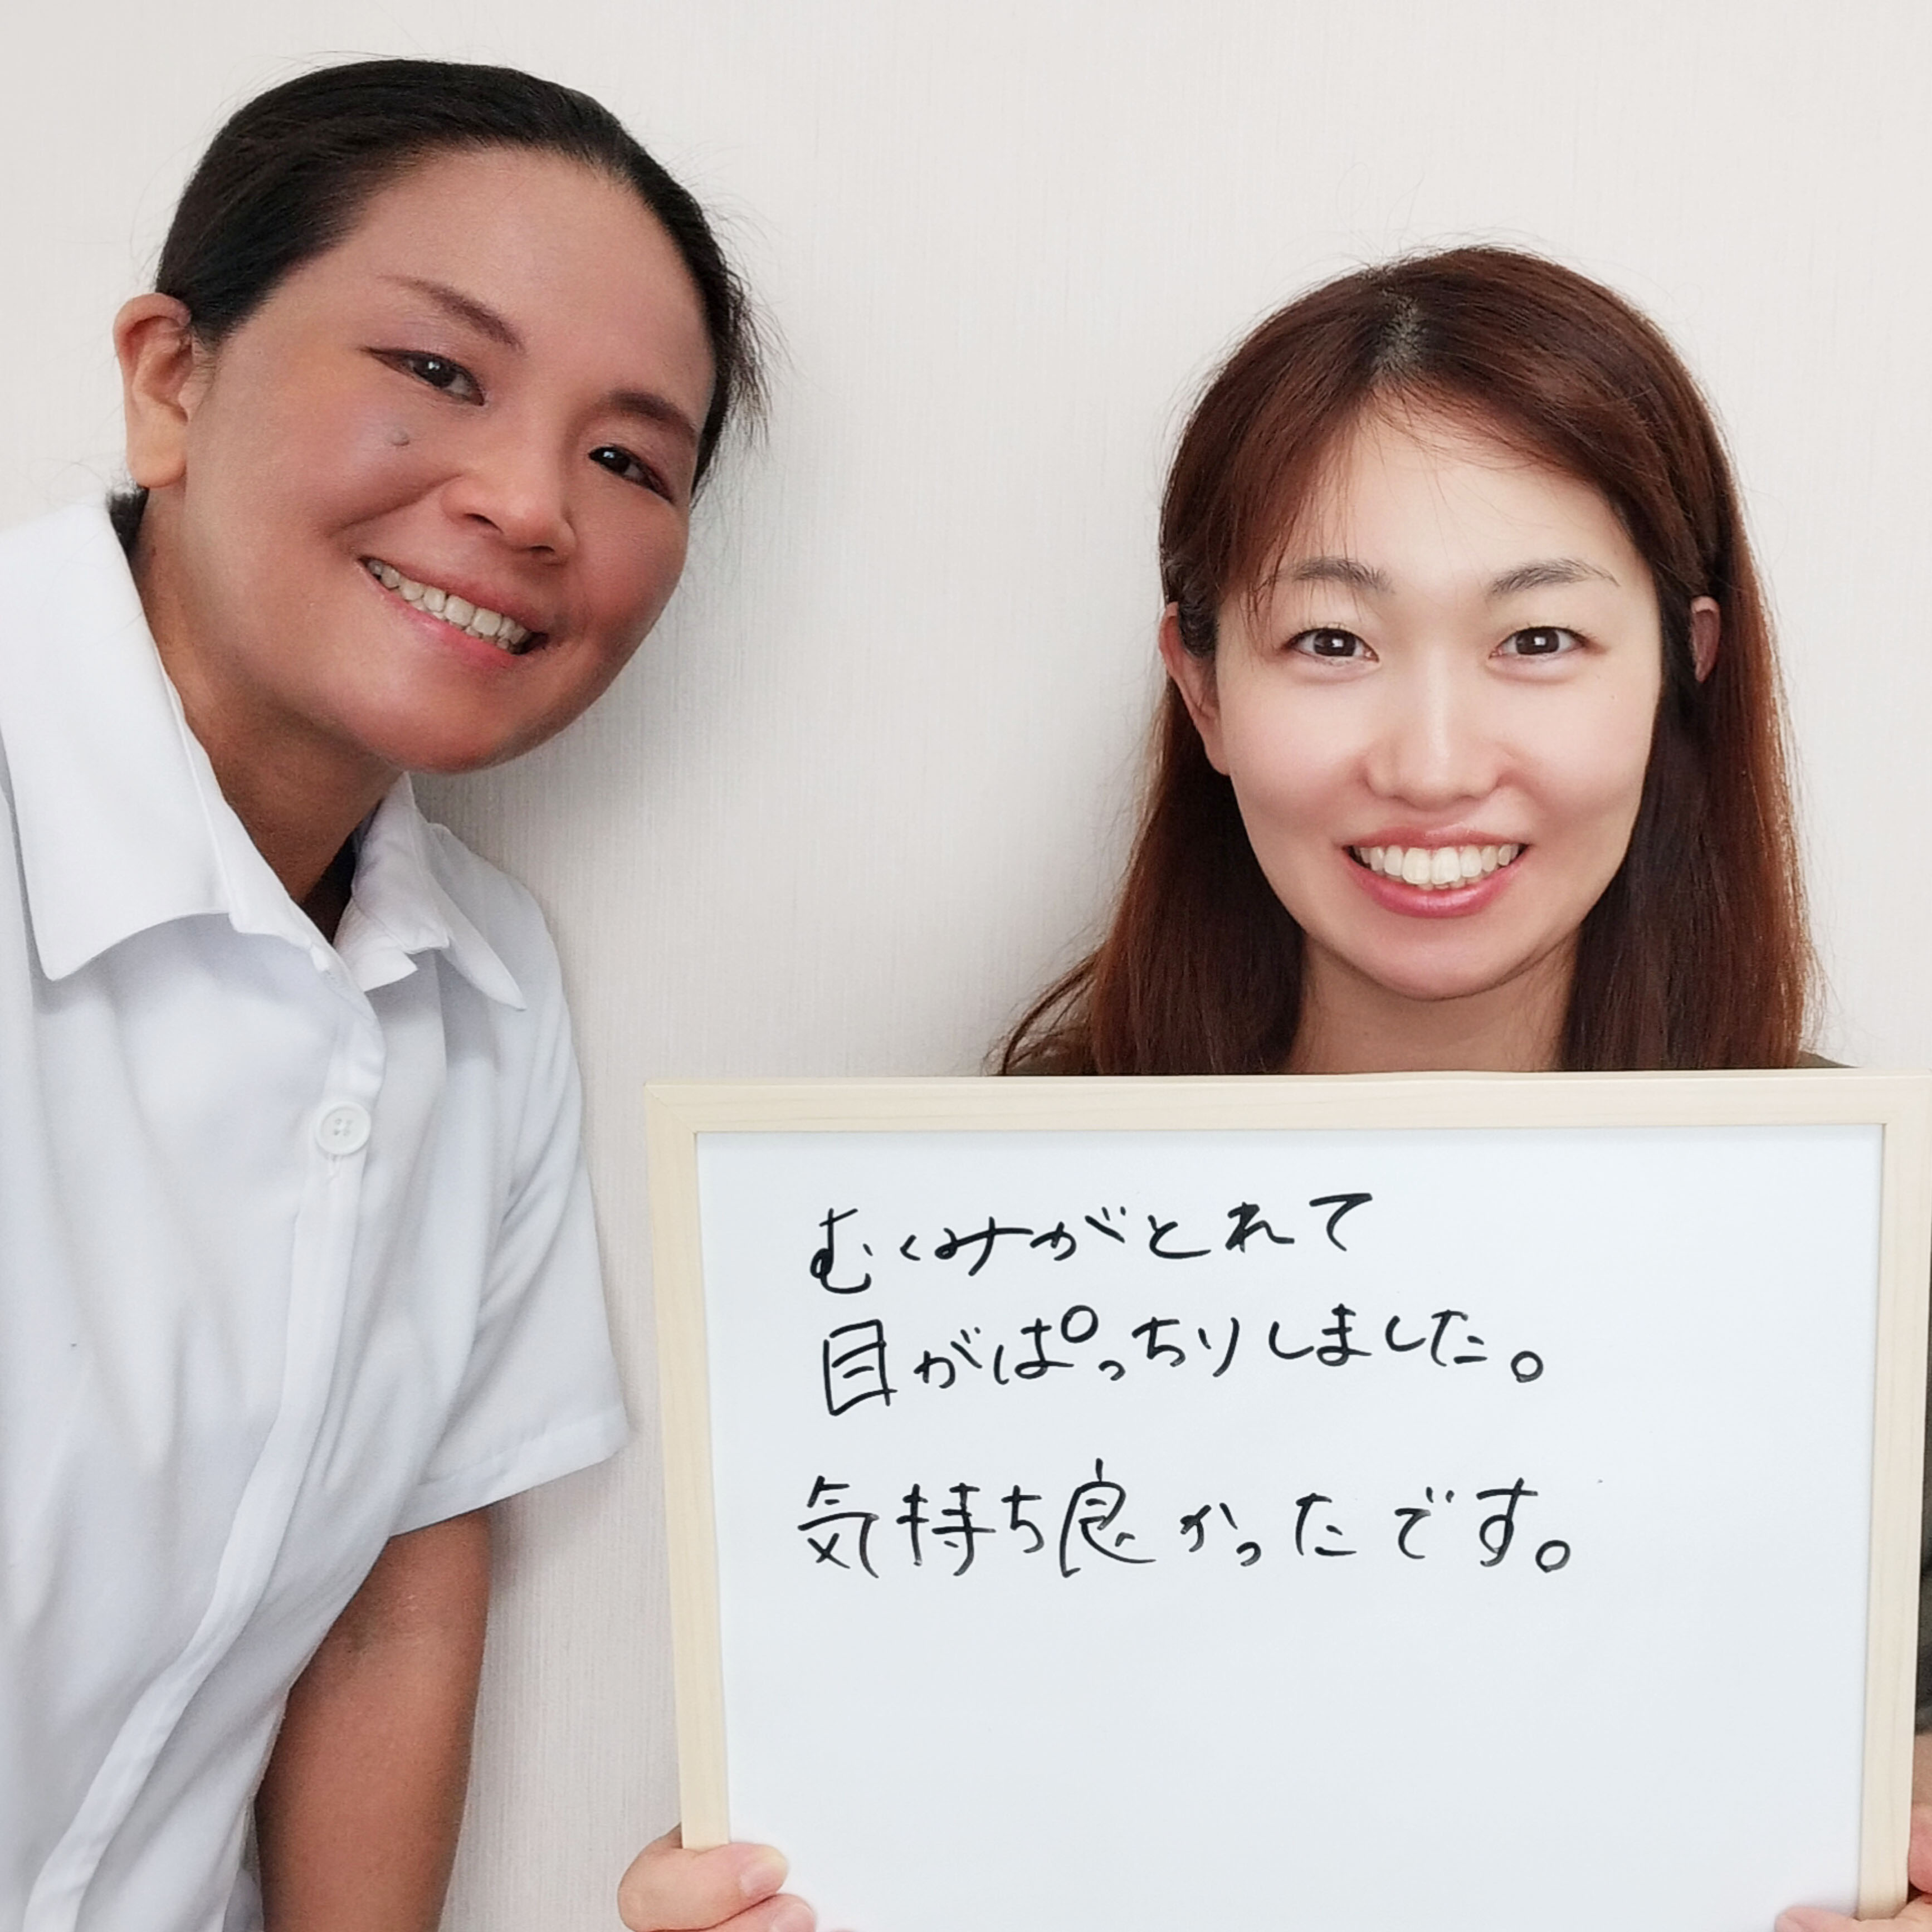 むくみがとれて
目がぱっちりしました。
気持ち良かったです。